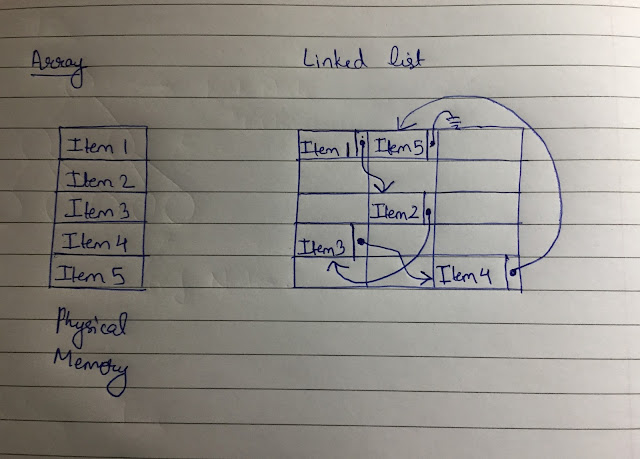 Array
Item 1
Item 2
Item 3
Item 4
Item 5
Physical
Memory
Linked list
Item 1 Item 5
Item 2
Item 3
Item 4